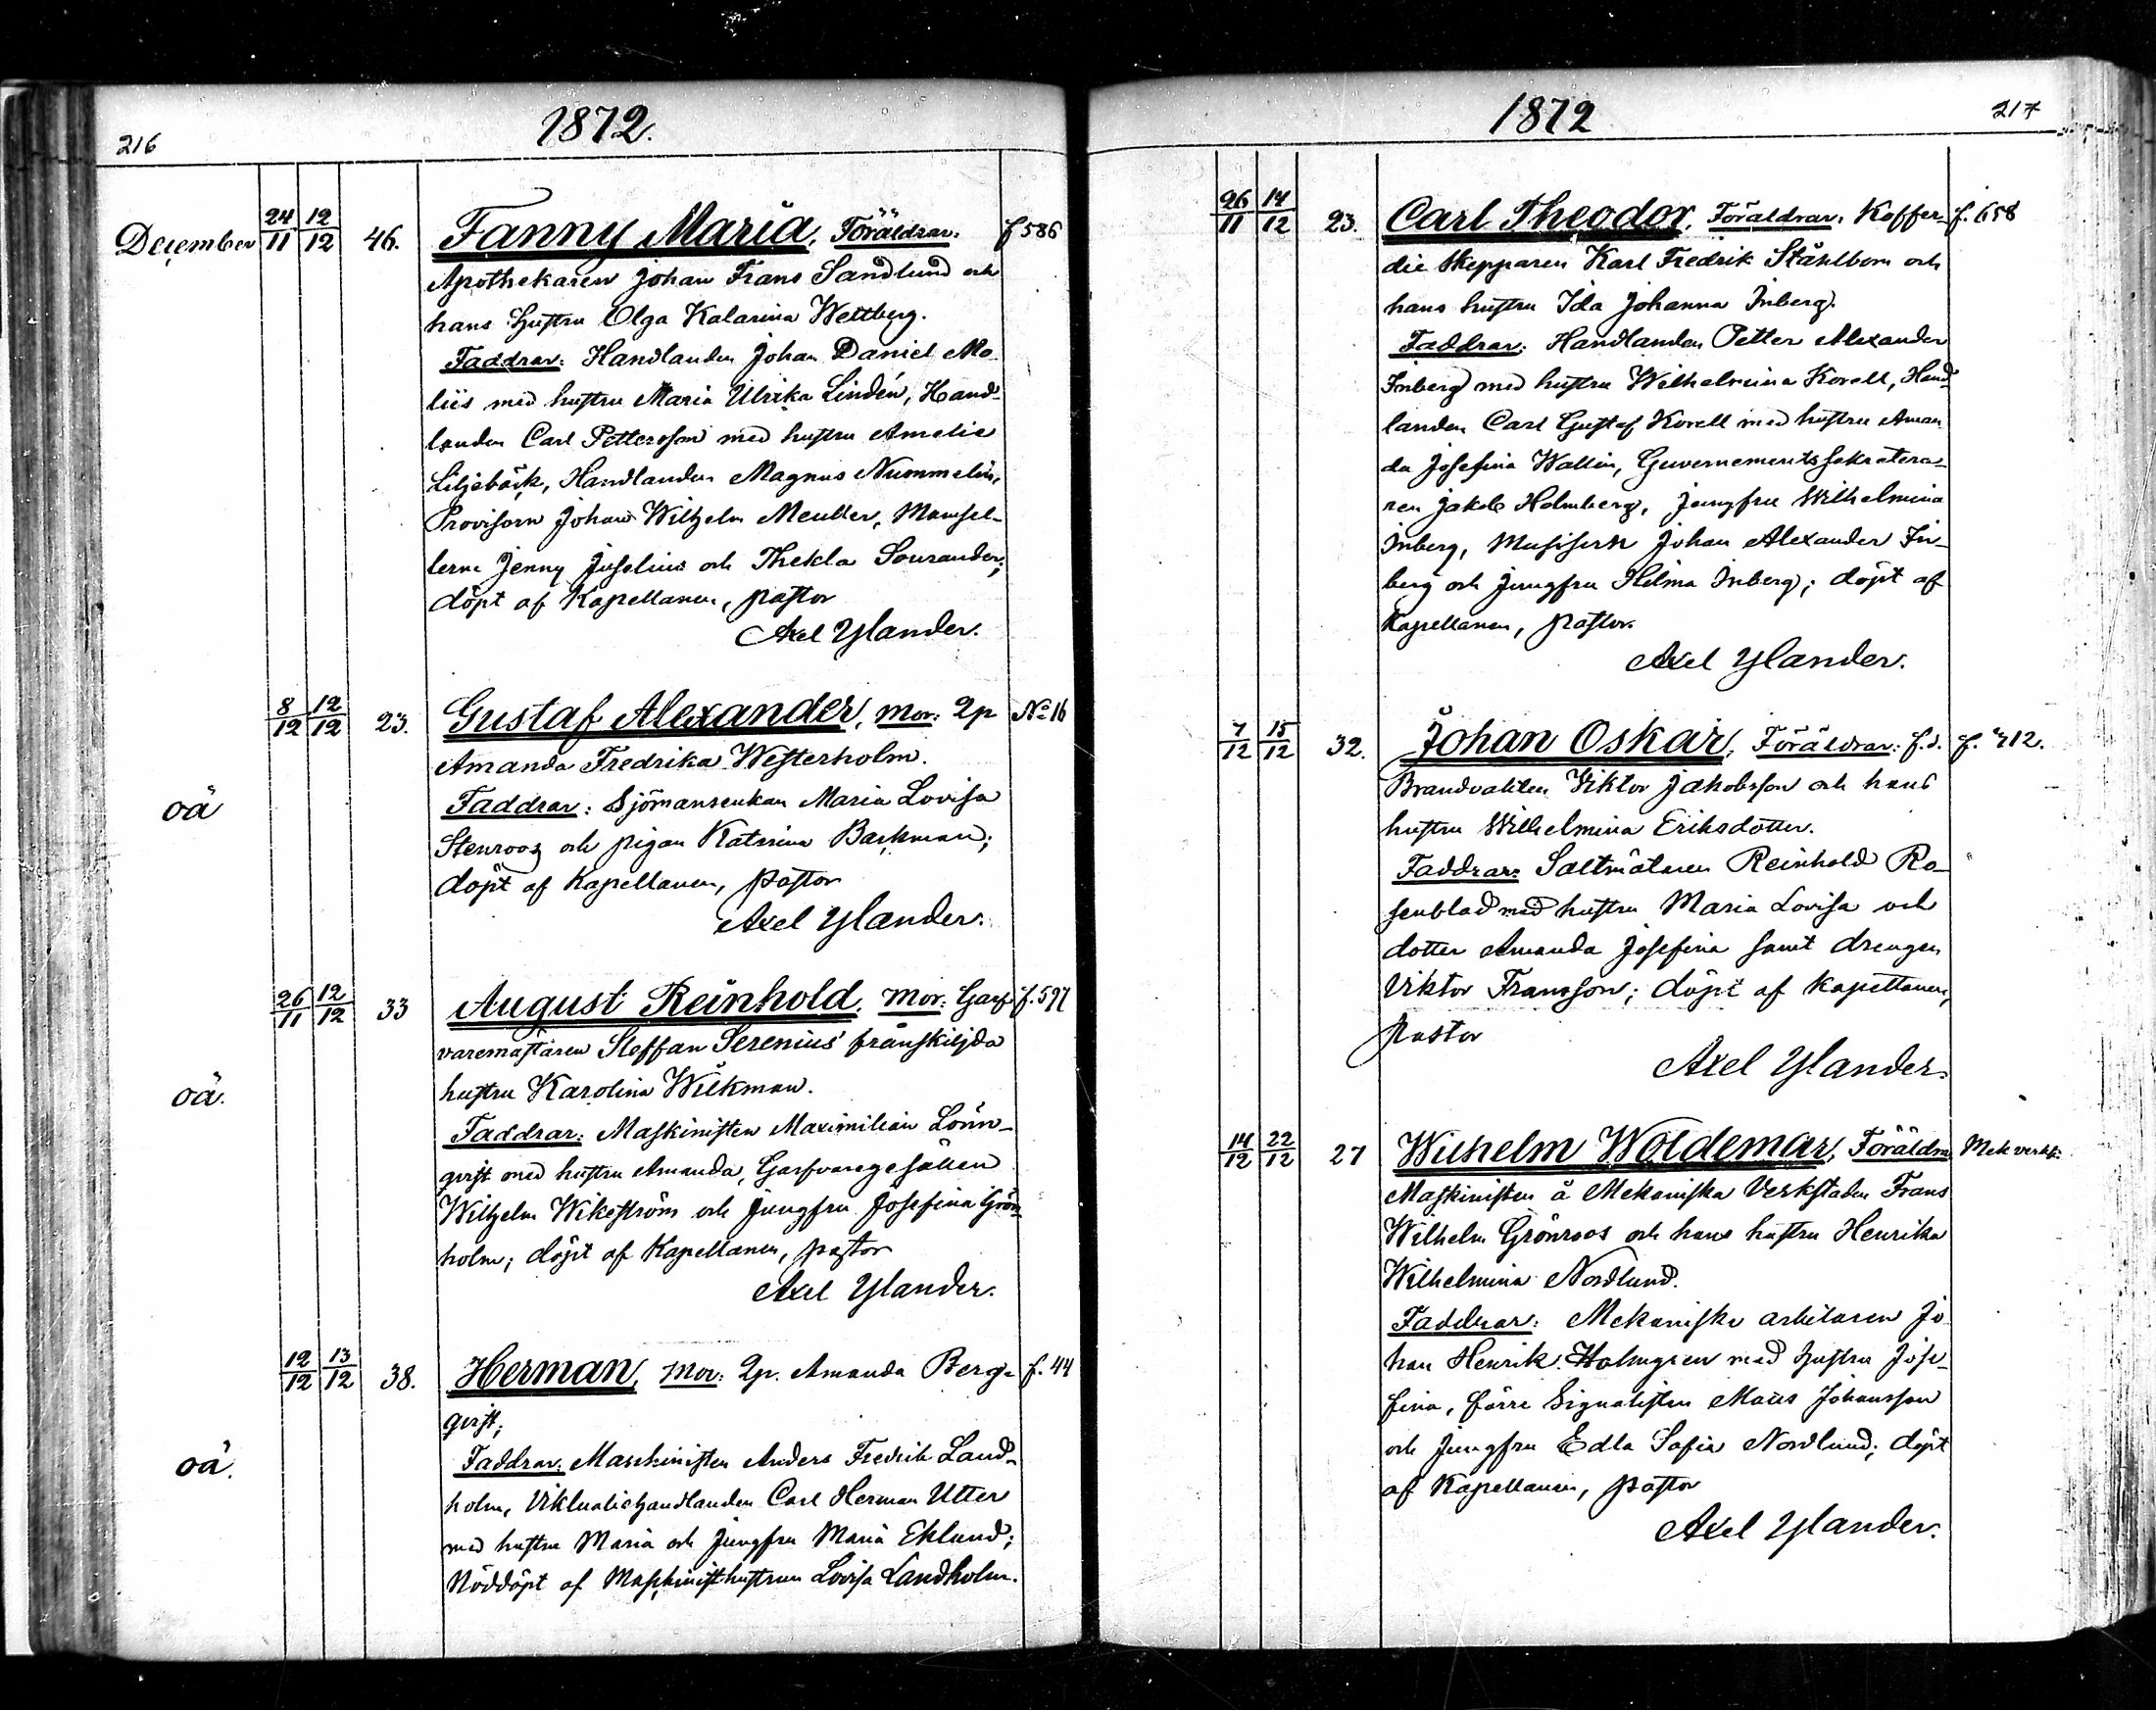 216
1872.
December 24/11 12/12 46. Fanny Maria, Föräldrar: f 586
Apothekaren Johan Frans Sandlund och
hans Hustru Olga Katarina Wettberg.
Faddrar: Handlanden Johan Daniel Mo
liis med hustru Maria Ulrika Lindén, Hand-
landen Carl Pettersson med hustru Amelie
Liljebäck, Handlanden Magnus Nummelin,
Provisorn Johan Wilhelm Meuller, Mamsel-
lerne Jenny Juselius och Thekla Sourander;
döpt af Kapellanen, pastor
Axel Ylander.
8/12 12/12 23. Gustaf Alexander, mor: Qp No 16
Amanda Fredrika Westerholm.
oä Faddrar: Sjömansenkan Maria Lovisa
Stenroos och pigan Katrina Backman;
döpt af Kapellanen, pastor
Axel Ylander.
26/11 12/12 33 August Reinhold, mor: Garf f. 597
varemästaren Steffan Serenius' frånskiljda
oä. hustru Karolina Wikman.
Faddrar: Maskinisten Maximilian Lönn-
qvist med hustru Amanda, Garfvaregesällen
Wilhelm Wikström och Jungfru Josefina Grön
holm; döpt af Kapellanen, pastor
Axel Ylander.
12/12 13/12 38. Herman, mor: Qp. Amanda Berg- f. 44
qvist;
oä. Faddrar: Maschinisten Anders Fredrik Land-
holm, Viktualiehandlanden Carl Herman Utter
med hustru Maria och Jungfru Maria Eklund;
Nöddöpt af Maskinisthustrun Lovisa Landholm.
1872
217
26/11 14/12 23. Carl Theodor, Föräldrar: Koffer- f. 658
die Skepparen Karl Fredrik Ståhlbom och
hans hustru Ida Johanna Inberg.
Faddrar: Handlanden Petter Alexander
Inberg med hustru Wilhelmina Korell, Hand-
landen Carl Gustaf Korell med hustru Aman
da Josefina Wallin, Guvernementssekretera-
ren Jakob Holmberg, Jungfru Wilhelmina
Inberg, Musisern Johan Alexander In-
berg och Jungfru Hilma Inberg; döpt af
Kapellanen, pastor
Axel Ylander.
7/12 15/12 32. Johan Oskar, Föräldrar: f.d. f. 712.
Brandvakten Viktor Jakobsson och hans
hustru Wilhelmina Eriksdotter.
Faddrar: Saltmätaren Reinhold Ro-
senblad med hustru Maria Lovisa och
dotter Amanda Josefina samt drengen
Viktor Fransson; döpt af Kapellanen,
pastor
Axel Ylander.
14/12 22/12 27 Wilhelm Woldemar, Föräldra Mek verkst:
Maskinisten å Mekaniska Verkstaden Frans
Wilhelm Grönroos och hans hustru Henrika
Wilhelmina Nordlund.
Faddrar: Mekaniske arbetaren Jo
han Henrik Holmgren med hustru Jose-
fina, förre Signalisten Maïs Johansson
och Jungfru Edla Sofia Nordlund; döpt
af Kapellanen, pastor
Axel Ylander.